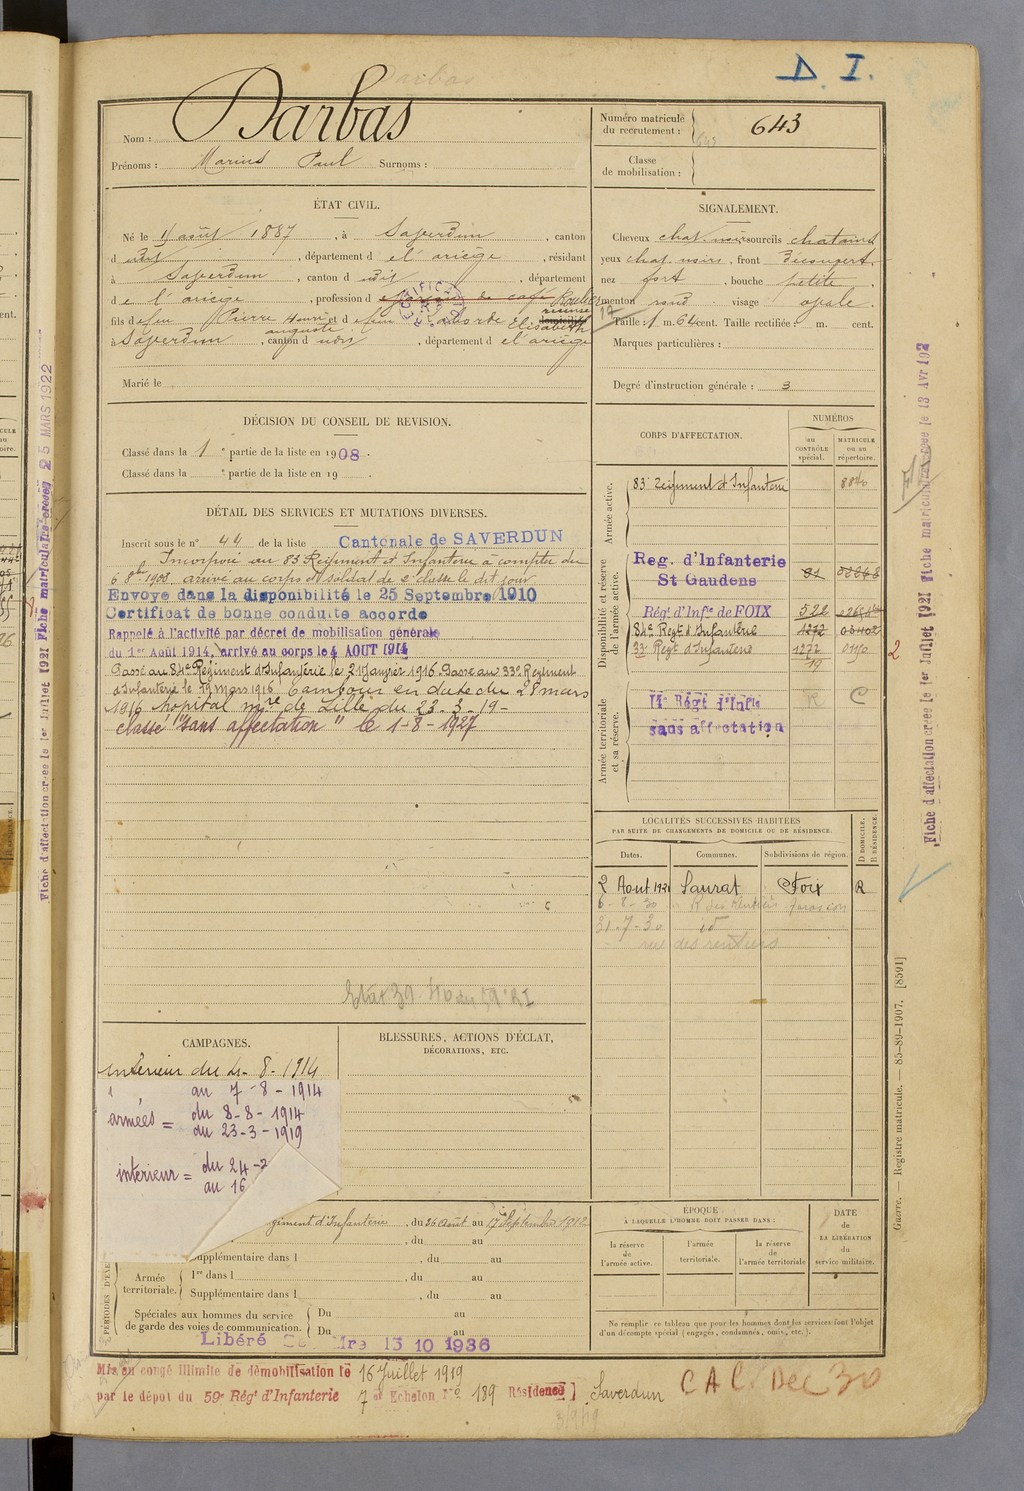 D. I.
Nom : Darbas
Prénoms : Marius Paul Surnoms :
Numéro matricule du recrutement : 643
Classe de mobilisation :
ÉTAT CIVIL.
Né le 11 août 1887, à Saverdun, canton
d udit, département d e l'ariège, résidant
à Saverdun, canton d udit, département
d e l'ariège, profession d garçon de café Roulier
fils de feu Pierre Henri et d feue Laborde Elisabeth
auguste
à Saverdun, canton d udit, département d e l'ariège
Marié le
SIGNALEMENT.
Cheveux chat. noirs sourcils chatains
yeux chat noirs, front découvert,
nez fort, bouche petite,
menton rond visage ovale.
Taille : 1 m. 64 cent. Taille rectifiée : m. cent.
Marques particulières :
Degré d'instruction générale : 3
DÉCISION DU CONSEIL DE REVISION.
Classé dans la 1e partie de la liste en 1908.
Classé dans la e partie de la liste en 19 .
DÉTAIL DES SERVICES ET MUTATIONS DIVERSES.
Inscrit sous le n° 44 de la liste Cantonale de SAVERDUN
Incorporé au 83 Régiment d'Infanterie à compter du
6 8bre 1908, arrivé au corps et soldat de 2e classe le dit jour
Envoyé dans la disponibilité le 25 Septembre 1910
Certificat de bonne conduite accordé
Rappelé à l'activité par décret de mobilisation générale
du 1er Août 1914, arrivé au corps le 4 AOUT 1914
Passé au 84e Régiment d'Infanterie le 21 Janvier 1916 Passé au 33e Régiment
d'Infanterie le 19 mars 1916 Tambour en date du 28 mars
1916 hopital mre de Lille du 23-3-19-
classé "sans affectation" le 1-8-1927
CORPS D'AFFECTATION.
NUMÉROS
au CONTRÔLE spécial.
MATRICULE ou au répertoire.
Armée active.
83e Régiment d'Infanterie 8840
Disponibilité et réserve de l'armée active.
Reg. d'Infanterie
St Gaudens
Régt d'Infie de FOIX 522
84e Regt d'Infanterie 1272
33e Regt d'Infanterie 1272
19
2
Armée territoriale et sa réserve.
14e Régt d'Infie R C
sans affectation
LOCALITÉS SUCCESSIVES HABITÉES
PAR SUITE DE CHANGEMENTS DE DOMICILE OU DE RÉSIDENCE.
Dates. Communes. Subdivisions de région. D DOMICILE. R RÉSIDENCE.
2 Aout 1920 Saurat Foix R
6-8-30 R des rentiers
31-7-30 id
rue des rentiers
CAMPAGNES.
intérieur du 4-8-1914
au 7-8-1914
armées = du 8-8-1914
du 23-3-1919
intérieur = du 24-
au 16
BLESSURES, ACTIONS D'ÉCLAT,
DÉCORATIONS, ETC.
giment d'Infanterie, du 26 août au 17 Septembre 1912
, du au
upplémentaire dans l , du au
PÉRIODES D'EXE
Armée territoriale.
1re dans l , du au
Supplémentaire dans l , du au
Spéciales aux hommes du service de garde des voies de communication.
Du au
Du au
Libéré 13 10 1936
ÉPOQUE
À LAQUELLE L'HOMME DOIT PASSER DANS :
la réserve de l'armée active.
l'armée territoriale.
la réserve de l'armée territoriale
DATE de LA LIBÉRATION du service militaire.
Ne remplir ce tableau que pour les hommes dont les services font l'objet
d'un décompte spécial (engagés, condamnés, omis, etc.).
Mis en congé illimité de démobilisation le 16 Juillet 1919
par le dépôt du 59e Régt d'Infanterie 7e Echelon N° 189 Résidence] Saverdun
CAL Dec 30
Guerre. — Registre matricule. — 85-89-1907. [8591]
Fiche d'affectation créée le 1er Juillet 1921 Fiche matriculaire créée le 13 Avr 192
Fiche d'affectation créée le 1er Juillet 1921 Fiche matriculaire créée 25 MARS 1922